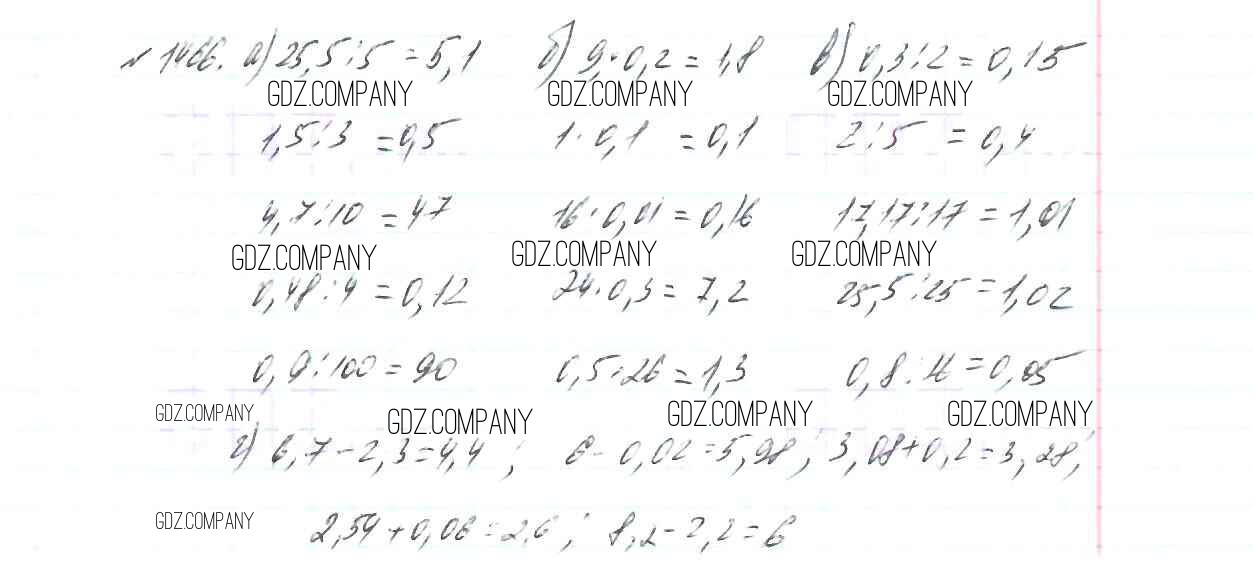 № 1466. а) 25,5 : 5 = 5,1 б) 9 · 0,2 = 1,8 в) 0,3 : 2 = 0,15
GDZ.COMPANY GDZ.COMPANY GDZ.COMPANY
1,5 : 3 = 0,5 1 · 0,1 = 0,1 2 : 5 = 0,4
4,7 : 10 = 47 16 · 0,01 = 0,16 17,17 : 17 = 1,01
GDZ.COMPANY GDZ.COMPANY GDZ.COMPANY
0,48 : 4 = 0,12 24 · 0,3 = 7,2 25,5 : 25 = 1,02
0,9 : 100 = 90 0,5 · 26 = 1,3 0,8 : 16 = 0,05
GDZ.COMPANY GDZ.COMPANY GDZ.COMPANY GDZ.COMPANY
г) 6,7 - 2,3 = 4,4 ; 6 - 0,02 = 5,98 ; 3,08 + 0,2 = 3,28 ;
GDZ.COMPANY 2,54 + 0,06 = 2,6 ; 8,2 - 2,2 = 6